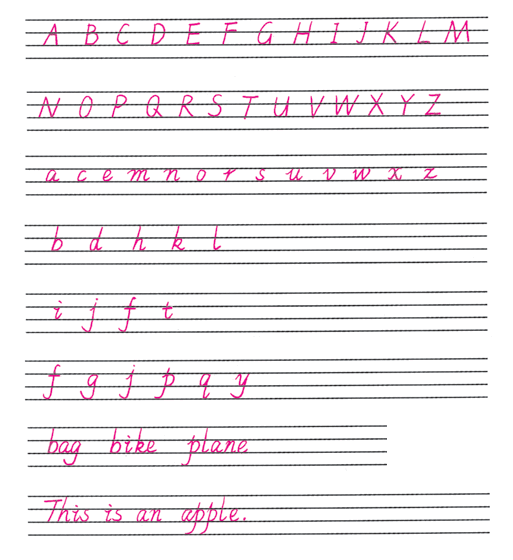 A B C D E F G H I J K L M
N O P Q R S T U V W X Y Z
a c e m n o r s u v w x z
b d h k l
i j f t
f g j p q y
bag bike plane
This is an apple.